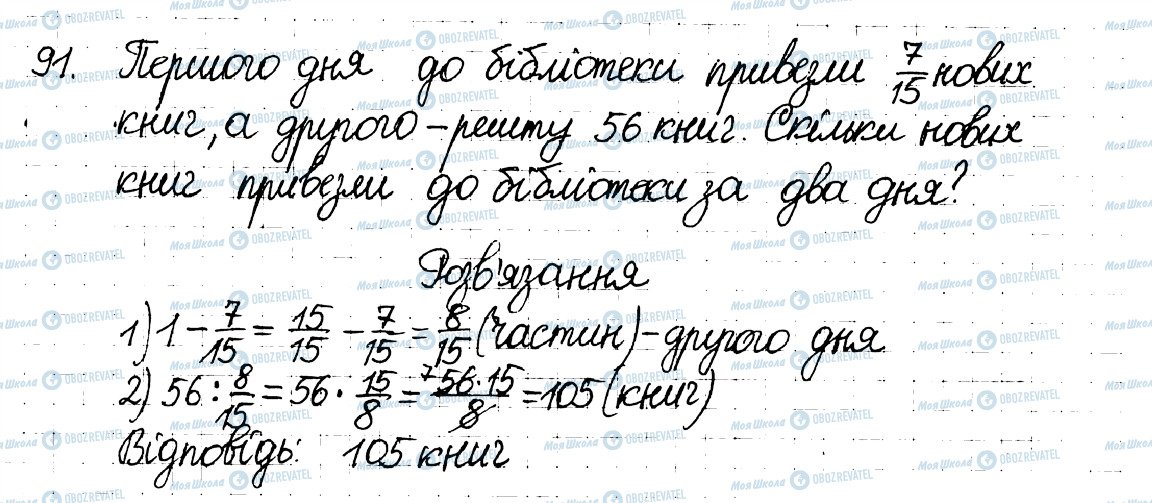 91. Першого дня до бібліотеки привезли 7/15 нових
книг, а другого – решту 56 книг. Скільки нових
книг привезли до бібліотеки за два дня?
Розв'язання
1) 1 - 7/15 = 15/15 - 7/15 = 8/15 (частин) - другого дня
2) 56 : 8/15 = 56 · 15/8 = 7 56·15/8 = 105 (книг)
Відповідь: 105 книг
МояШкола OBOZREVATEL